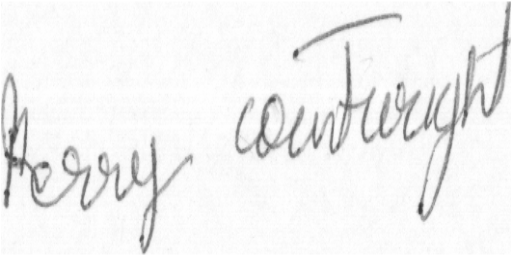 Harry courtwright